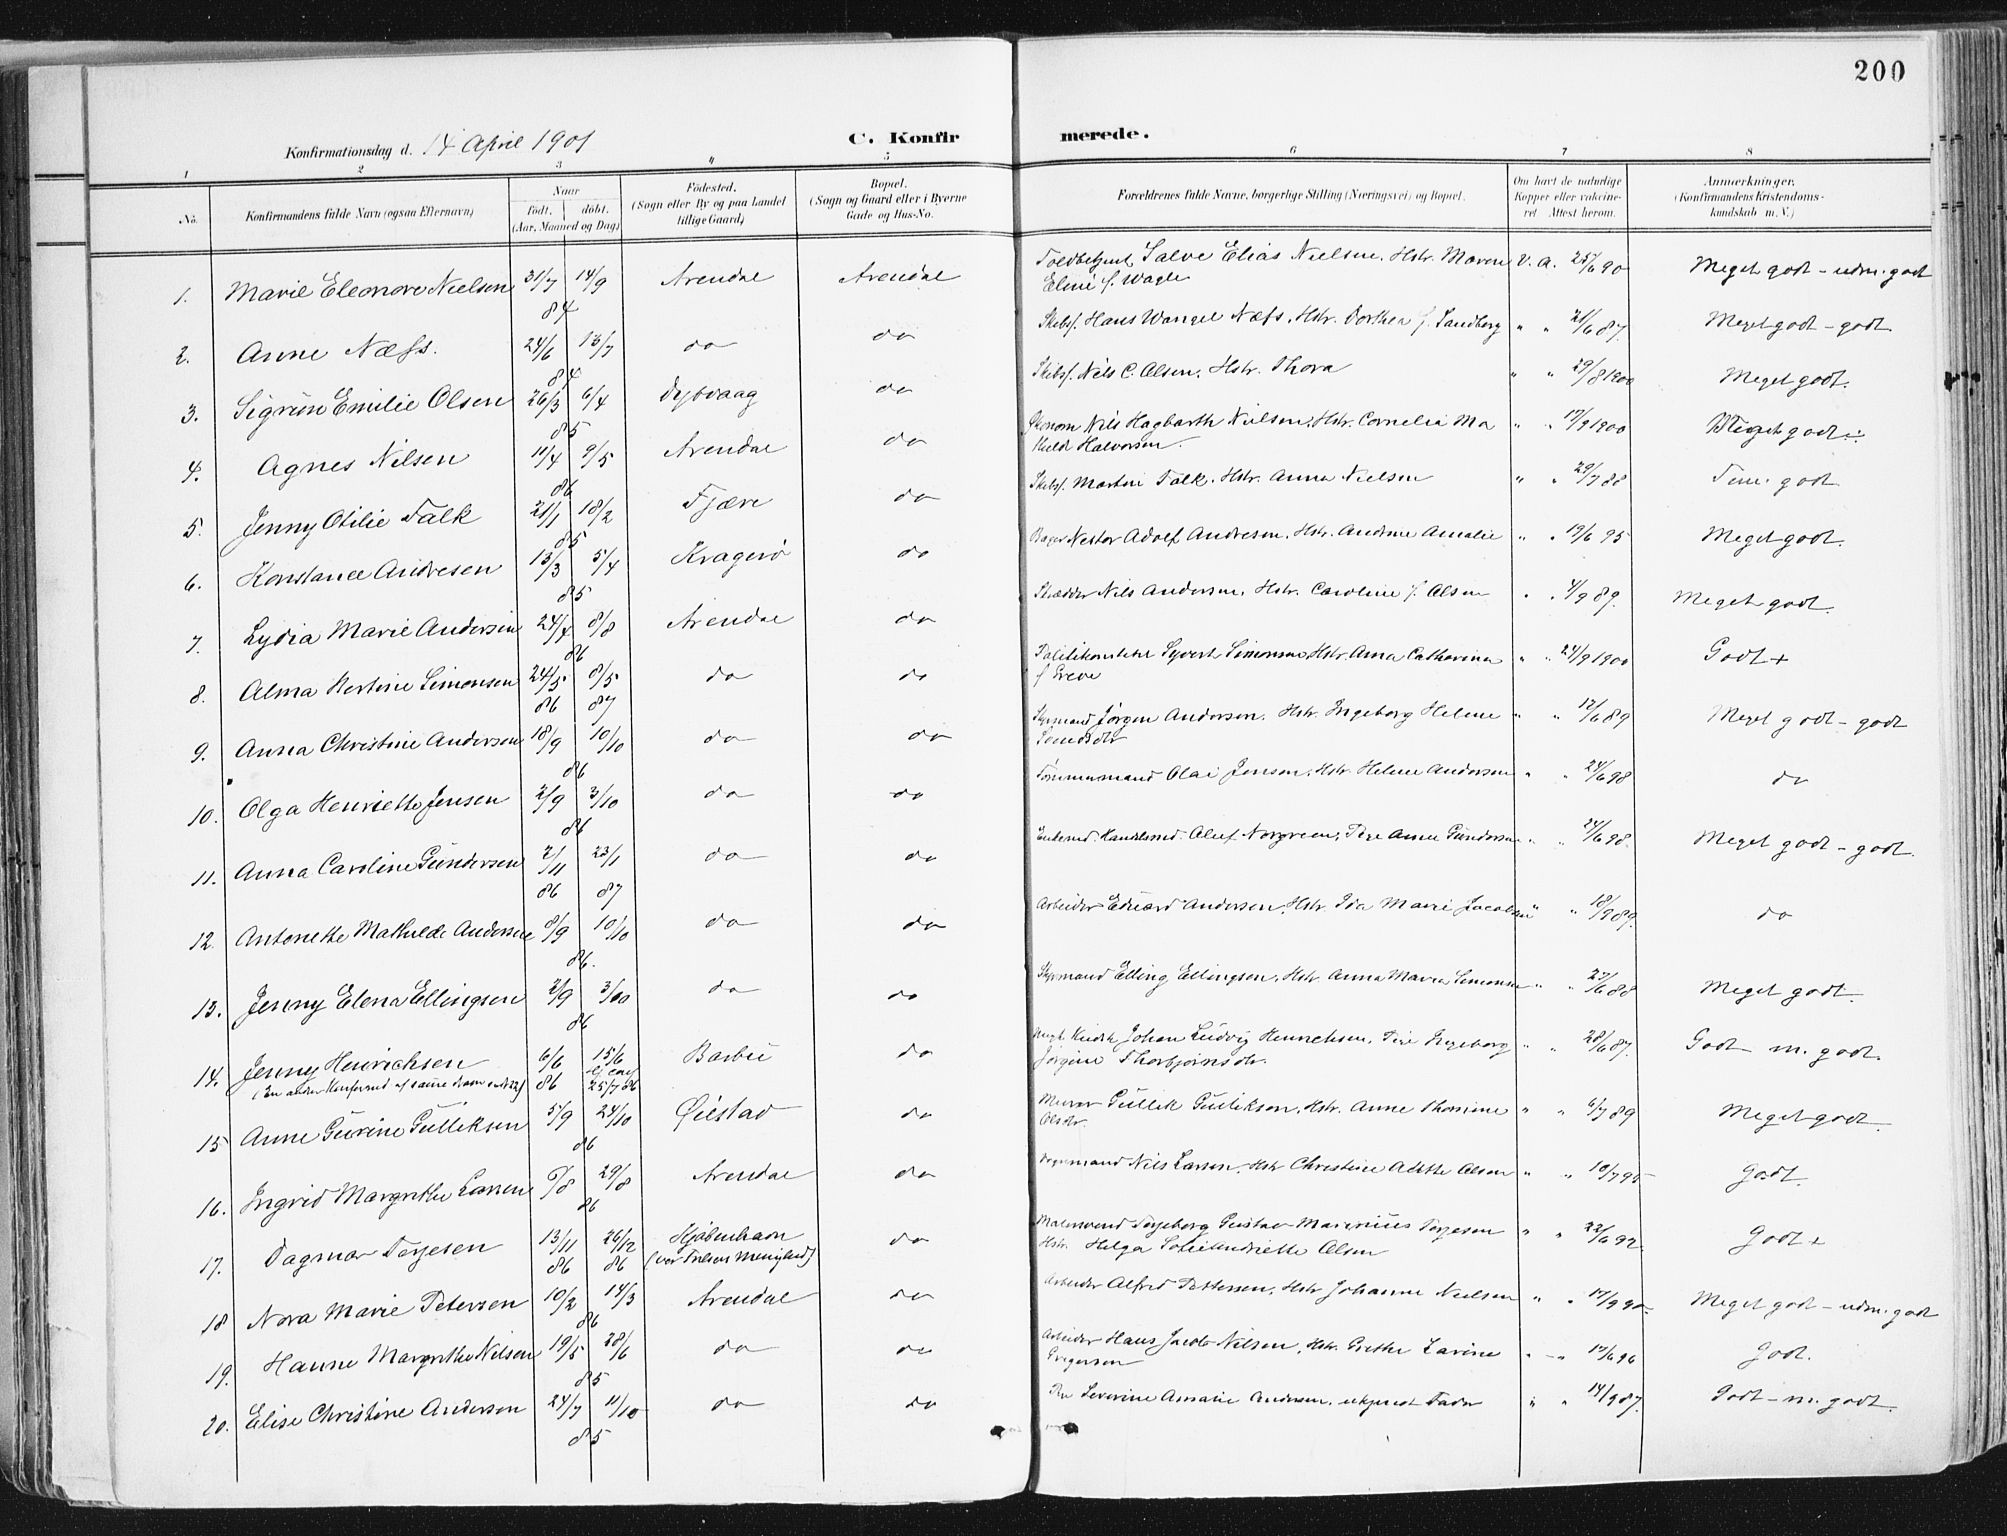 200
Konfirmationsdag d. 14 April 1901
C. Konfirmerede.
1 2 3 4 5 6 7 8
No. Konfirmandens fulde Navn (ogsaa Efternavn) Naar født. døbt. (Aar, Maaned og Dag) Fødested. (Sogn eller By og paa Landet tillige Gaard) Bopæl. (Sogn og Gaard eller i Byerne Gade og Hus-No. Forældrenes fulde Navne, borgerlige Stilling (Næringsvei) og Bopæl. Om havt de naturlige Kopper eller vakcineret Attest herom. Anmærkninger. (Konfirmandens Kristendomskundskab m. V.)
1. Marie Eleonore Nielsen 31/7 14/9 84 Arendal Arendal Toldbetjent Salve Elias Nielsen, Hstr. Maren Eline f. Wagle V. A. 25/6 90 Meget godt - udm. godt
2. Anne Næss. 24/6 13/7 84 do do Skibsf. Hans Wangel Næss, Hstr. Dorthea f. Sandberg " " 21/6 87. Meget godt - godt
3. Sigrun Emilie Olsen 26/3 6/4 85 Dybvaag do Skibsf. Nils C. Olsen, Hstr. Thora " " 29/8 1900 Meget godt.
4. Agnes Nilsen 11/4 9/5 86 Arendal do Økonom Nils Hagbarth Nielsen, Hstr. Cornelia Mathilde Halvorsen " " 17/9 1900 Meget godt ÷
5. Jenny Otilie Falk 21/1 18/2 85 Fjære do Skibsf. Martin Falk, Hstr. Anna Nielsen " " 29/7 88 Tem. godt
6. Konstance Andresen 13/3 5/4 85 Kragerø do Bager Nestor Adolf Andresen, Hstr. Andrine Amalie " " 19/6 95 Meget godt.
7. Lydia Marie Andersen 24/4 8/8 86 Arendal do Skrædder Nils Andersen, Hstr. Caroline f. Olsen " " 4/9 89. Meget godt.
8. Alma Hertine Simonsen 24/5 86 8/5 87 do do Politikonstabel Syvert Simonsen, Hstr. Anna Catharina f. Greve " " 24/9 1900 Godt +
9. Anna Christine Andersen 18/9 10/10 86 do do Styrmand Jørgen Andersen, Hstr. Ingeborg Helene " " 17/6 89 Meget godt - godt
10. Olga Henriette Jensen 2/9 3/10 86 do do Tømmermand Olai Jensen, Hstr. Helene Andersen " " 24/6 98 do
11. Anna Caroline Gundersen 2/11 86 23/1 87 do do Enkemd. Handelsmd. Oluf Norgreen, Pige Anne Gundersen " " 24/6 98. Meget godt - godt.
12. Antonette Mathilde Andersen 8/9 10/10 86. do do Arbeider Edvard Andersen, Hstr. Ida Marie Jacobsen " " 18/9 89. do
13. Jenny Elena Ellingsen 2/9 3/10 86 do do Styrmand Elling Ellingsen, Hstr. Anna Maria Simonsen " " 27/6 88 Meget godt.
14. Jenny Henrichsen 6/6 86 15/6 25/7 86 Barbu do Johan Ludvig Henrichsen, Pige Ingeborg Jørgine Thorbjørnsdtr. " " 28/6 87. Godt m. godt.
15 Anne Gurine Gulliksen 5/9 24/10 86 Øiestad do Murer Gullik Gulliksen, Hstr. Anne Thomine Olsdtr. " " 6/7 89 Meget godt.
16. Ingrid Margrethe Larsen 6/8 29/8 86 Arendal do Nils Larsen, Hstr Christine Adethe Olsen " " 10/7 95 Godt.
17. Dagmar Terjesen 13/11 86 26/12 86 Kjøbenhavn (vor Frelsers Menighed) do Gustav Marinius Terjesen Hstr. Helga Sofie Andriette Olsen " " 22/6 92. Godt +
18 Nora Marie Petersen 10/2 14/3 86 Arendal do Arbeider Alfred Pettersen, Hstr Johanne Nielsen " " 17/9 90. Meget godt - udm. godt
19. Hanne Margrethe Nilsen 19/5 28/6 85 do do Arbeider Hans Jacob Nilsen, Hstr. Grethe Zarine Gregersen " " 17/6 96 Godt.
20. Elise Christine Andersen 24/7 11/10 85 do do Pige Severine Amalie Andersen, ukjendt Fader " " 14/9 87. Godt - m. godt.